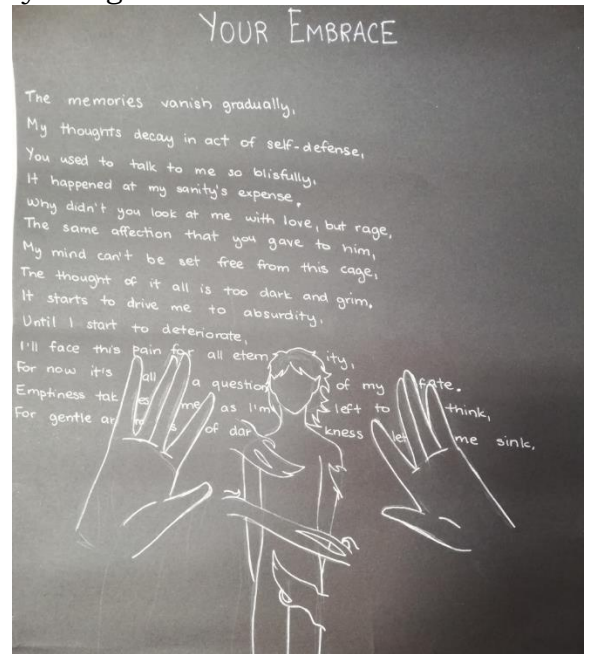 YOUR EMBRACE
The memories vanish gradually,
My thoughts decay in act of self-defense,
You used to talk to me so blisfully,
It happened at my sanity's expense.
Why didn't you look at me with love, but rage,
The same affection that you gave to him,
My mind can't be set free from this cage,
The thought of it all is too dark and grim.
It starts to drive me to absurdity,
Until I start to deteriorate,
I'll face this pain for all eternity,
For now it's all a question of my fate.
Emptiness takes me as I'm left to think,
For gentle arms of darkness let me sink.